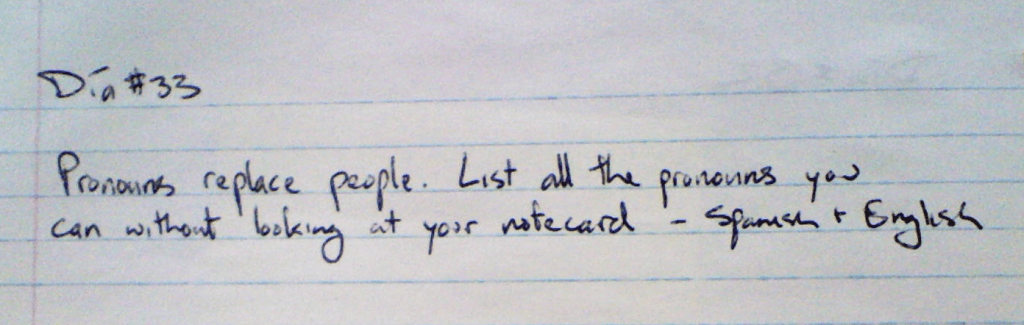 Día #33
Pronouns replace people. List all the pronouns you
can without looking at your notecard - Spanish + English